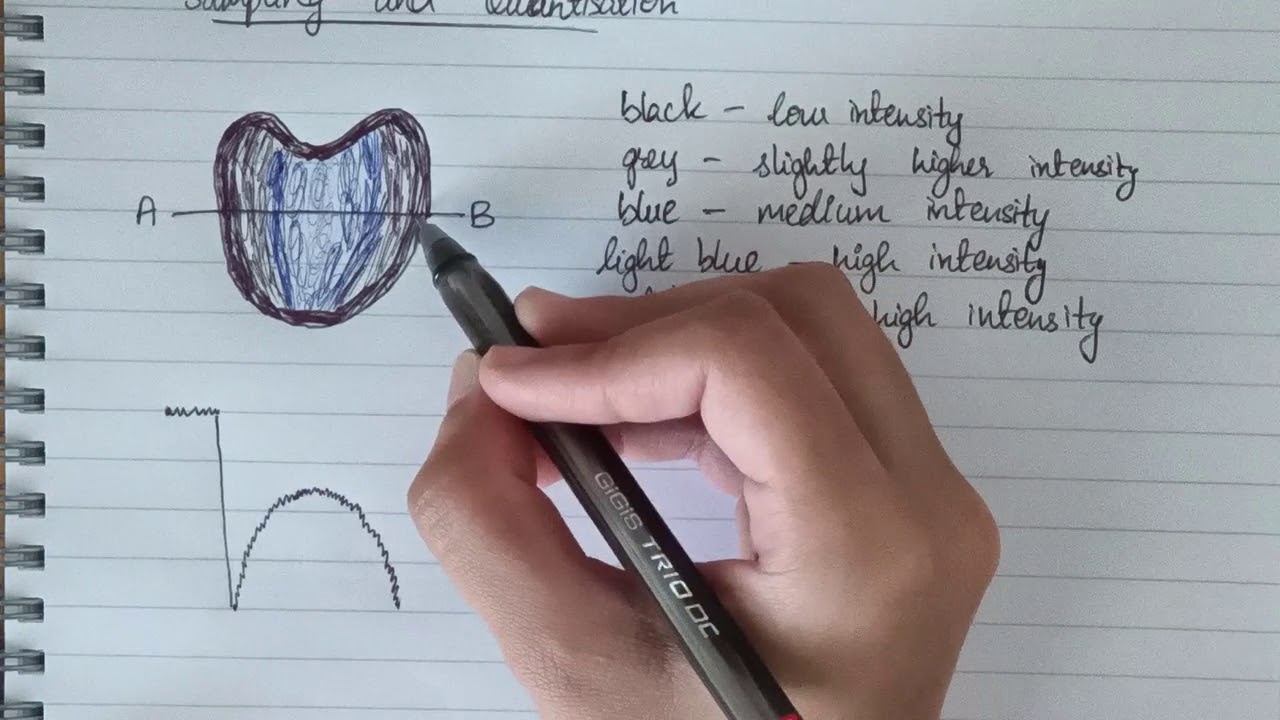 Sampling and Quantisation
black - low intensity
grey - slightly higher intensity
A B
blue - medium intensity
light blue - high intensity
high intensity
GIGIS TRIO DC